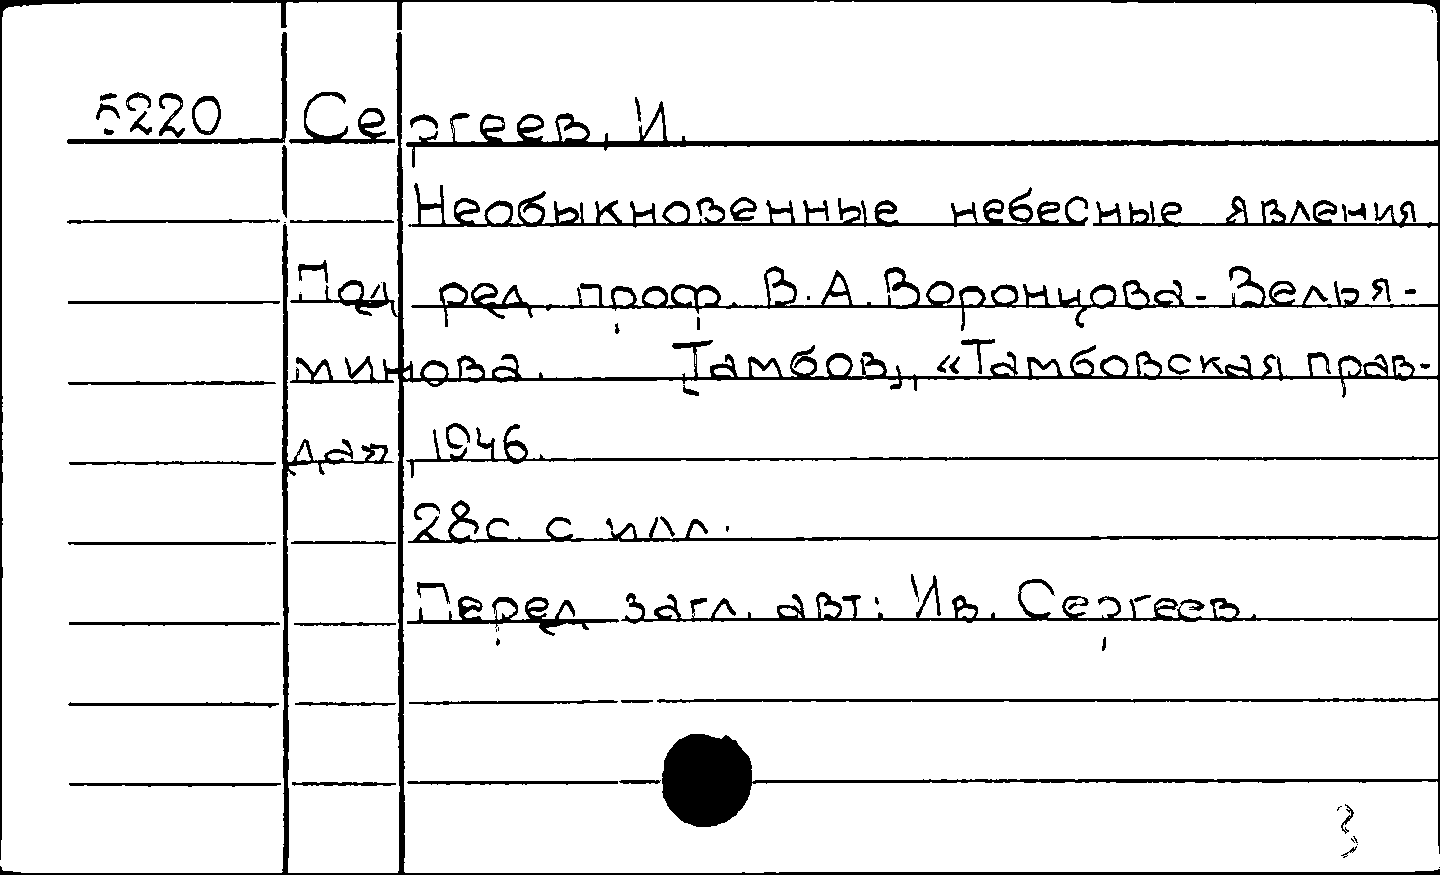 5220 Сергеев, И.
Необыкновенные небесные явления.
Под ред. проф. В.А.Воронцова-Велья-
минова. [Тамбов], «Тамбовская прав-
да», 1946.
28с. с илл.
Перед загл. авт: Ив. Сергеев.
3